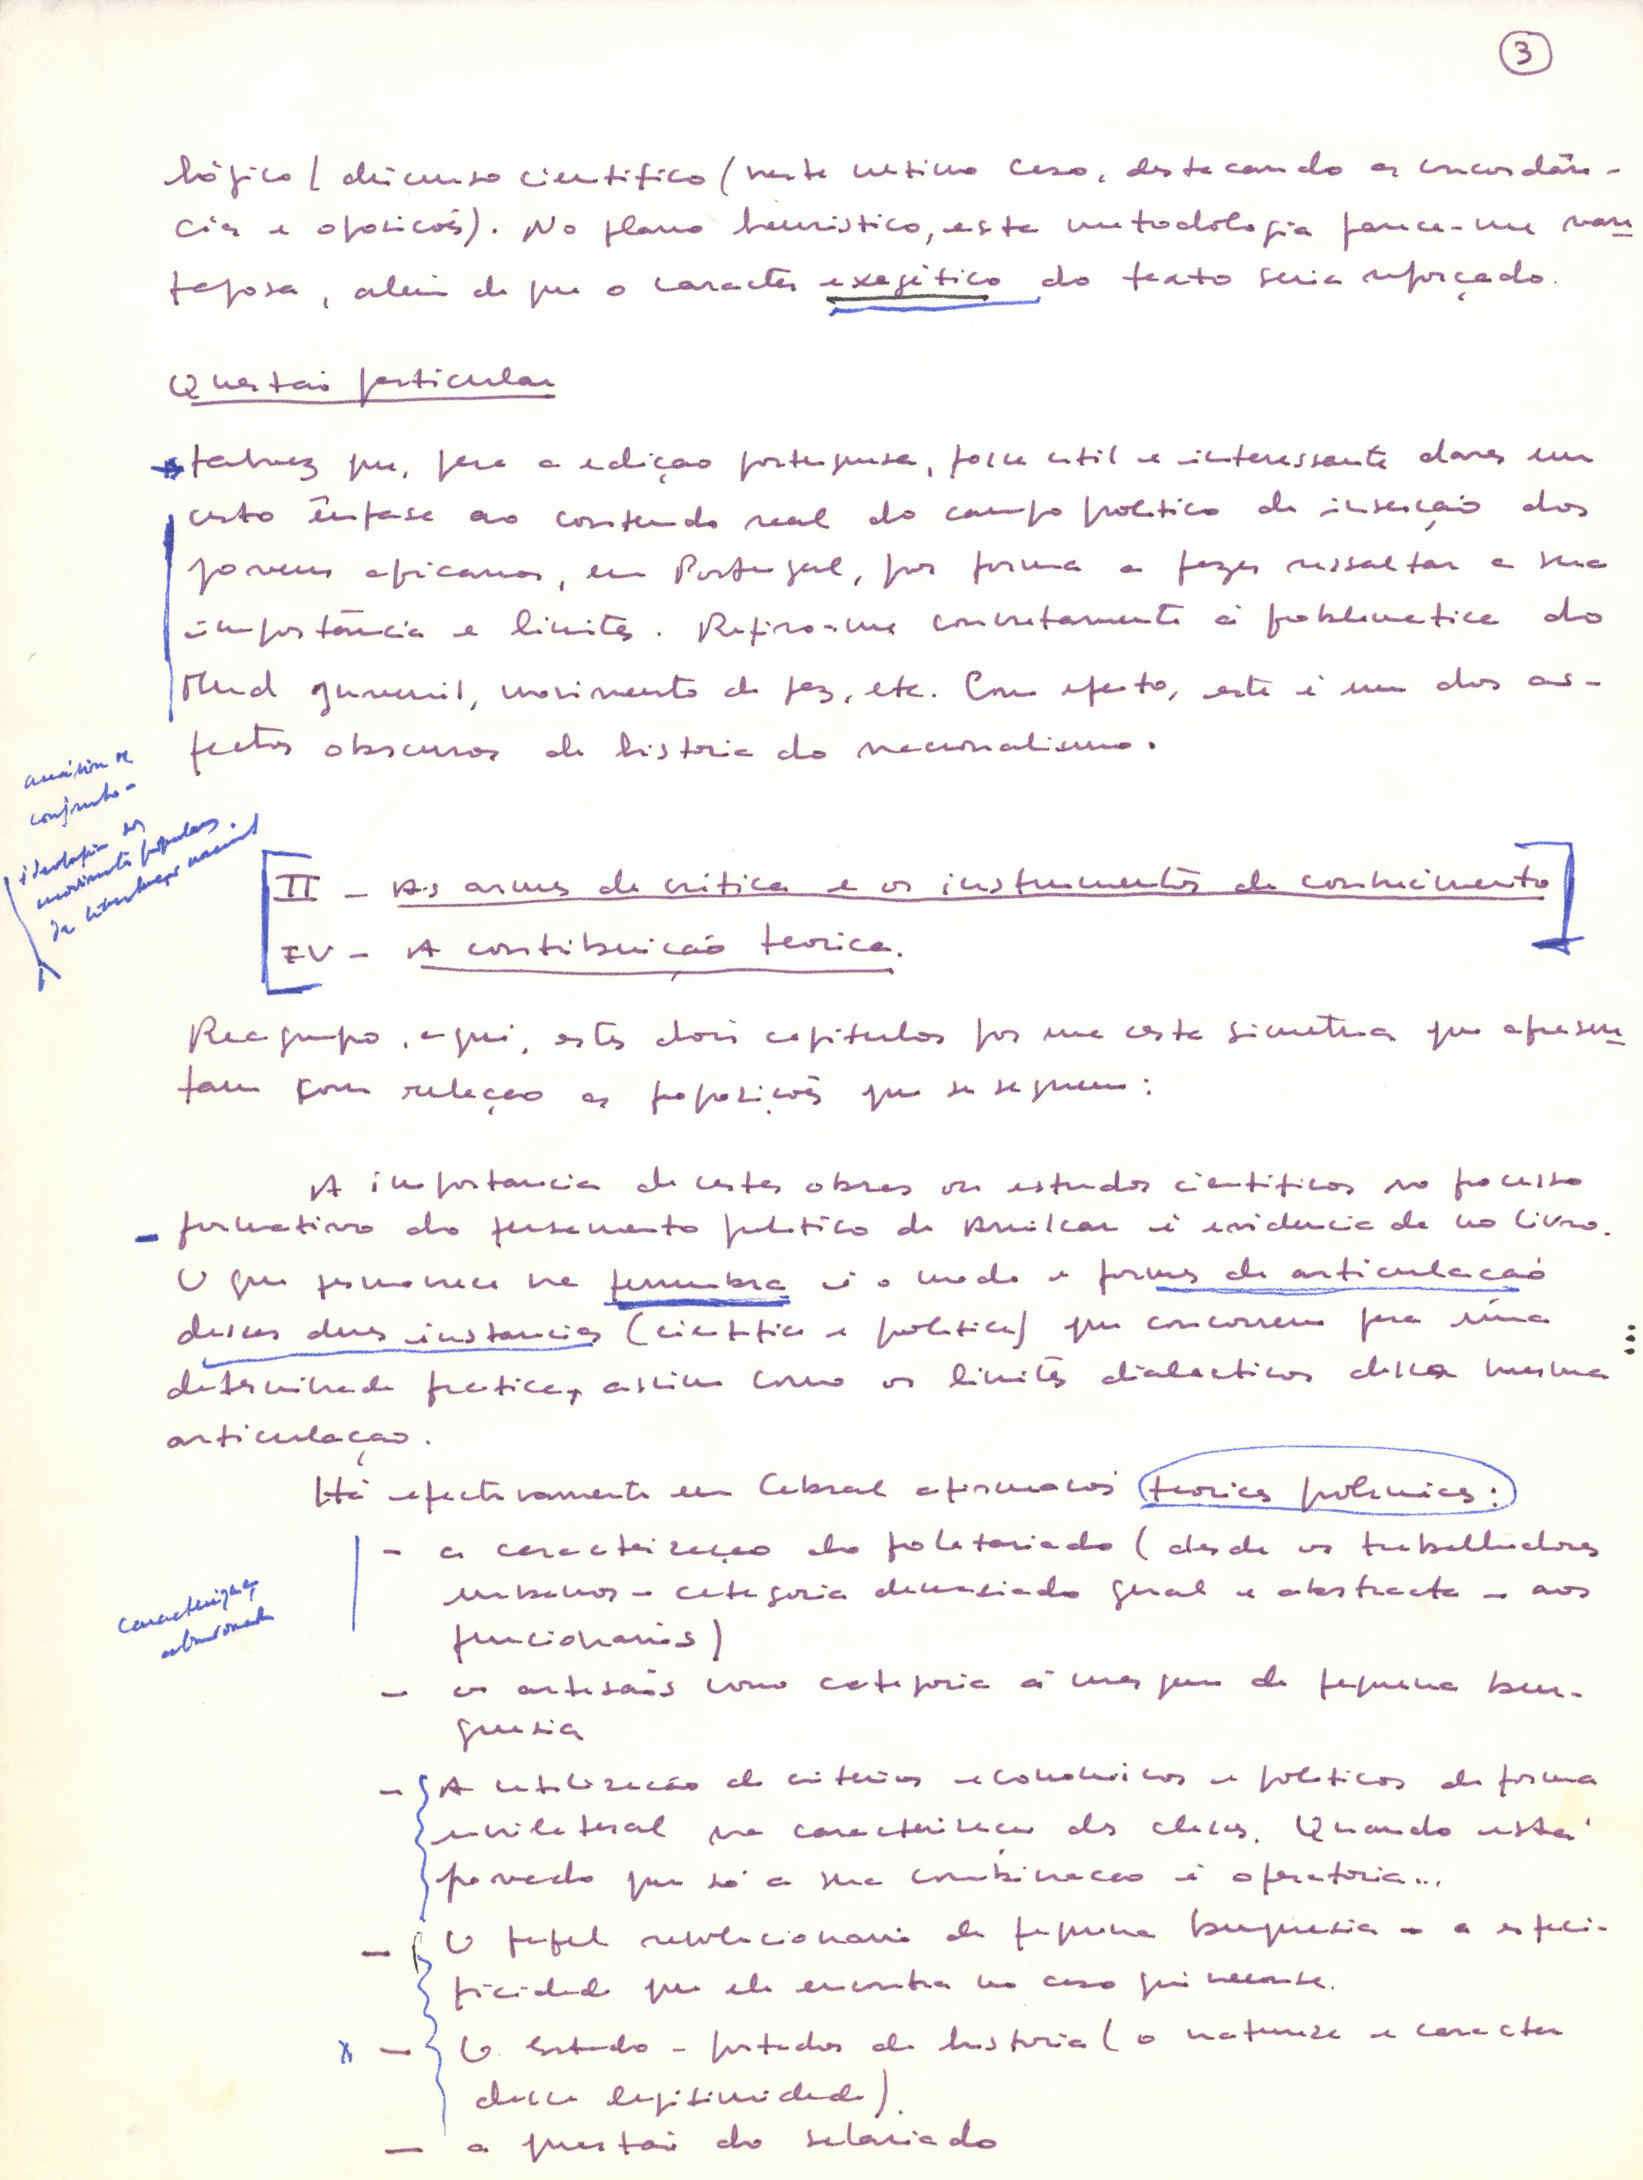 3
lógico / discurso científico (neste ultimo caso, destacando as concordân-
cias e oposições). No plano heuristico, esta metodologia parece-me van
tajosa, além de que o caracter exegético do texto seria reforçado.
Questão particular
talvez que, para a edição portuguesa, fosse util e interessante dares um
certo ênfase ao conteudo real do campo politico de inserção dos
jovens africanos, em Portugal, por forma a fazer ressaltar a sua
importância e limites. Refiro-me concretamente à problematica do
Mud juvenil, movimento da paz, etc. Com efeito, este é um dos as-
pectos obscuros da historia do nacionalismo.
conjunto-
ideologia dos
movimentos populares
de libertação nacional
II - As armas da critica e os instrumentos de conhecimento
IV - A contribuição teorica.
Reagrupo, aqui, estes dois capitulos por uma certa simetria que apresen
tam com relação as proposições que se seguem:
A importancia de certas obras ou estudos cientificos no processo
formativo do pensamento politico de Amilcar é evidenciada no livro.
O que permanece na penumbra é o modo e formas de articulação
dessas duas instancias (cientifica e politica) que concorrem para uma
determinada pratica, assim como os limites dialecticos dessa mesma
articulação.
Há efectivamente em Cabral afirmações teoricas polemicas:
- a caracterização do proletariado (desde os trabalhadores
urbanos - categoria demasiado geral e abstracta - aos
funcionarios)
- os artesãos como categoria à margem da pequena bur-
guesia
caracterização
abandonada
- A utilização de criterios economicos e politicos de forma
unilateral na caracterização das classes. Quando está
provado que só a sua combinação é operatoria...
- O papel revolucionario da pequena burguesia - a especi-
ficidade que ela encontra no caso guineense.
x - O Estado - portador de historia (a natureza e caracter
dessa legitimidade).
- a questão do salariado